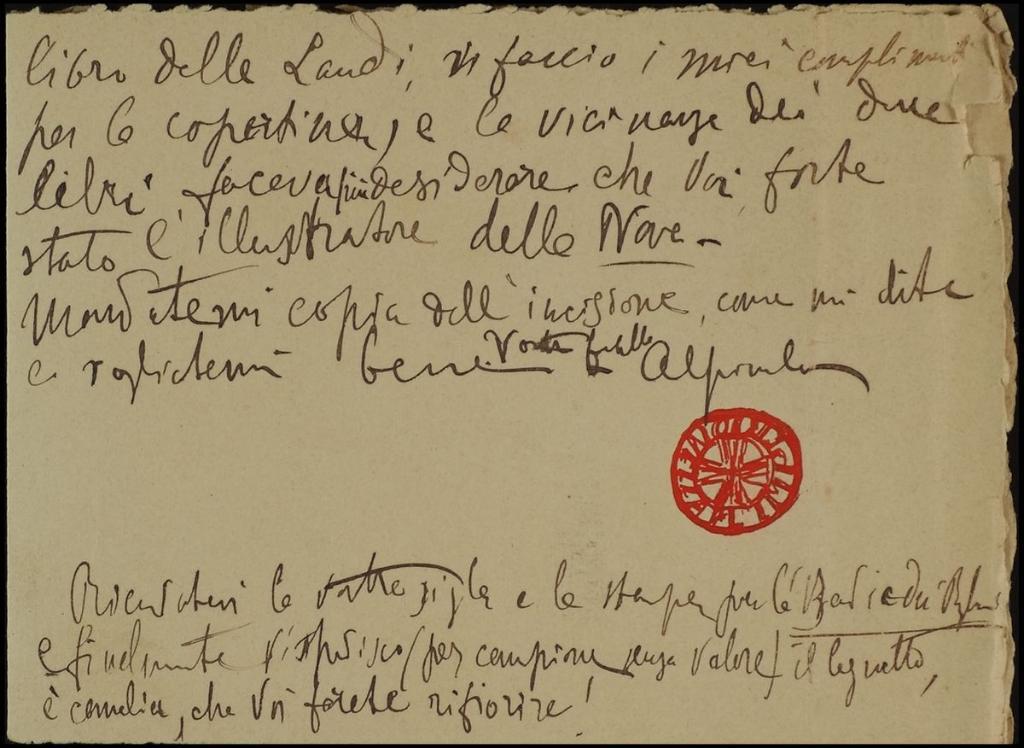 libro delle Laudi, vi faccio i miei complimenti
per la copertina, e la vicinanza dei due
libri faceva desiderare che voi foste
stato l'illustratore della Nave -
Mandatemi copia dell'incisione, come mi dite
e vogliatemi bene Vostro fratello
Ricordatevi la vostra sigla e la stampa per la Badia di
e finalmente vi spedisco (per campione senza valore) il legnetto,
è camelia, che voi farete rifiorire!